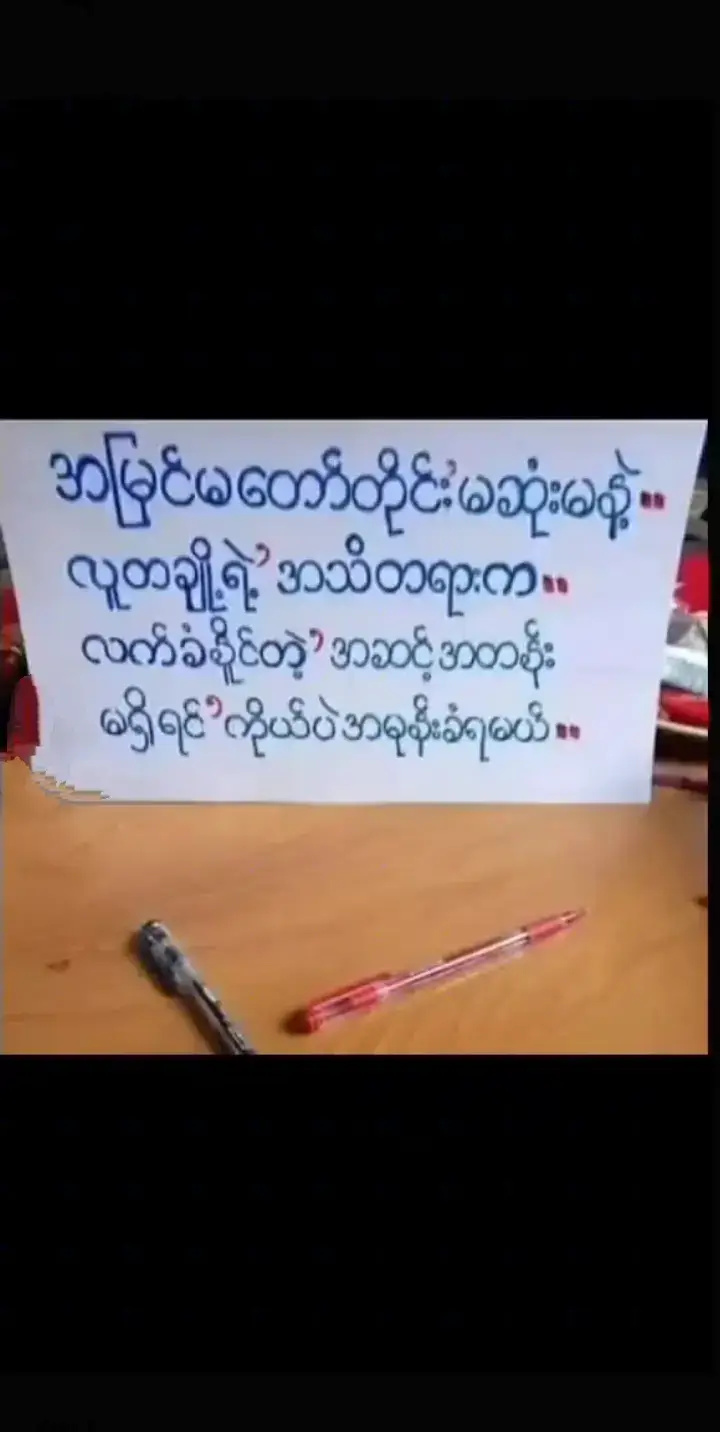 အမြင်မတော်တိုင်း’မဆုံးမနဲ့..
လူတချို့ရဲ့’အသိတရားက..
လက်ခံနိုင်တဲ့’အဆင့်အတန်း
မရှိရင်’ကိုယ်ပဲအမုန်းခံရမယ်..